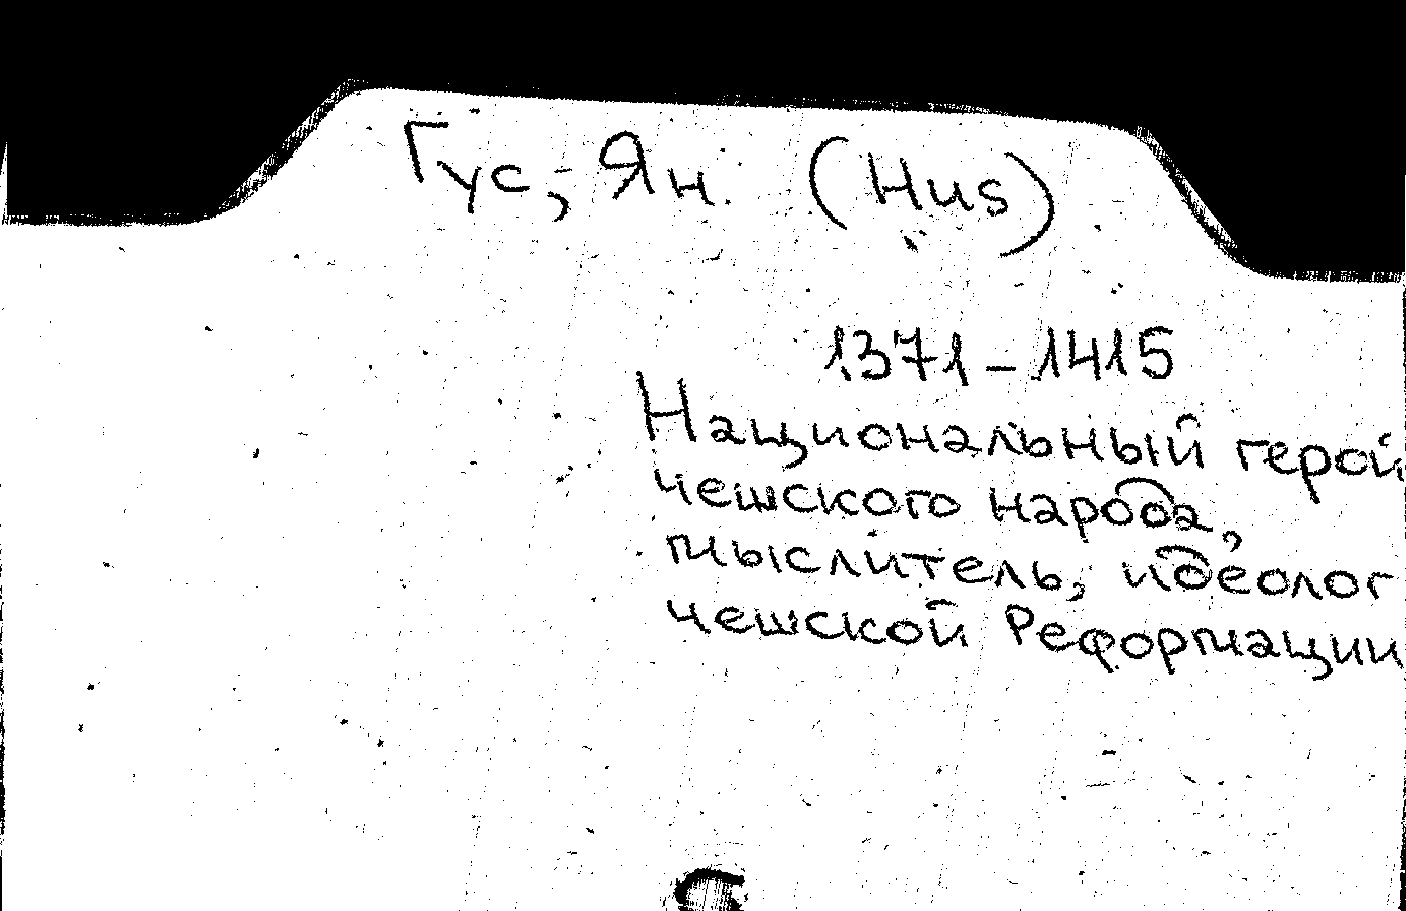 Гус, Ян. (Hus)
1371-1415
Национальный герой
чешского народа,
мыслитель, идеолог
чешской Реформации